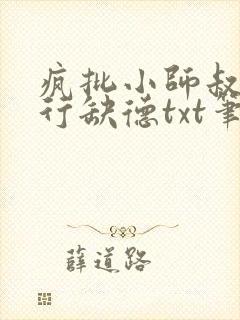 疯批小师叔
行缺德txt笔
薛道路